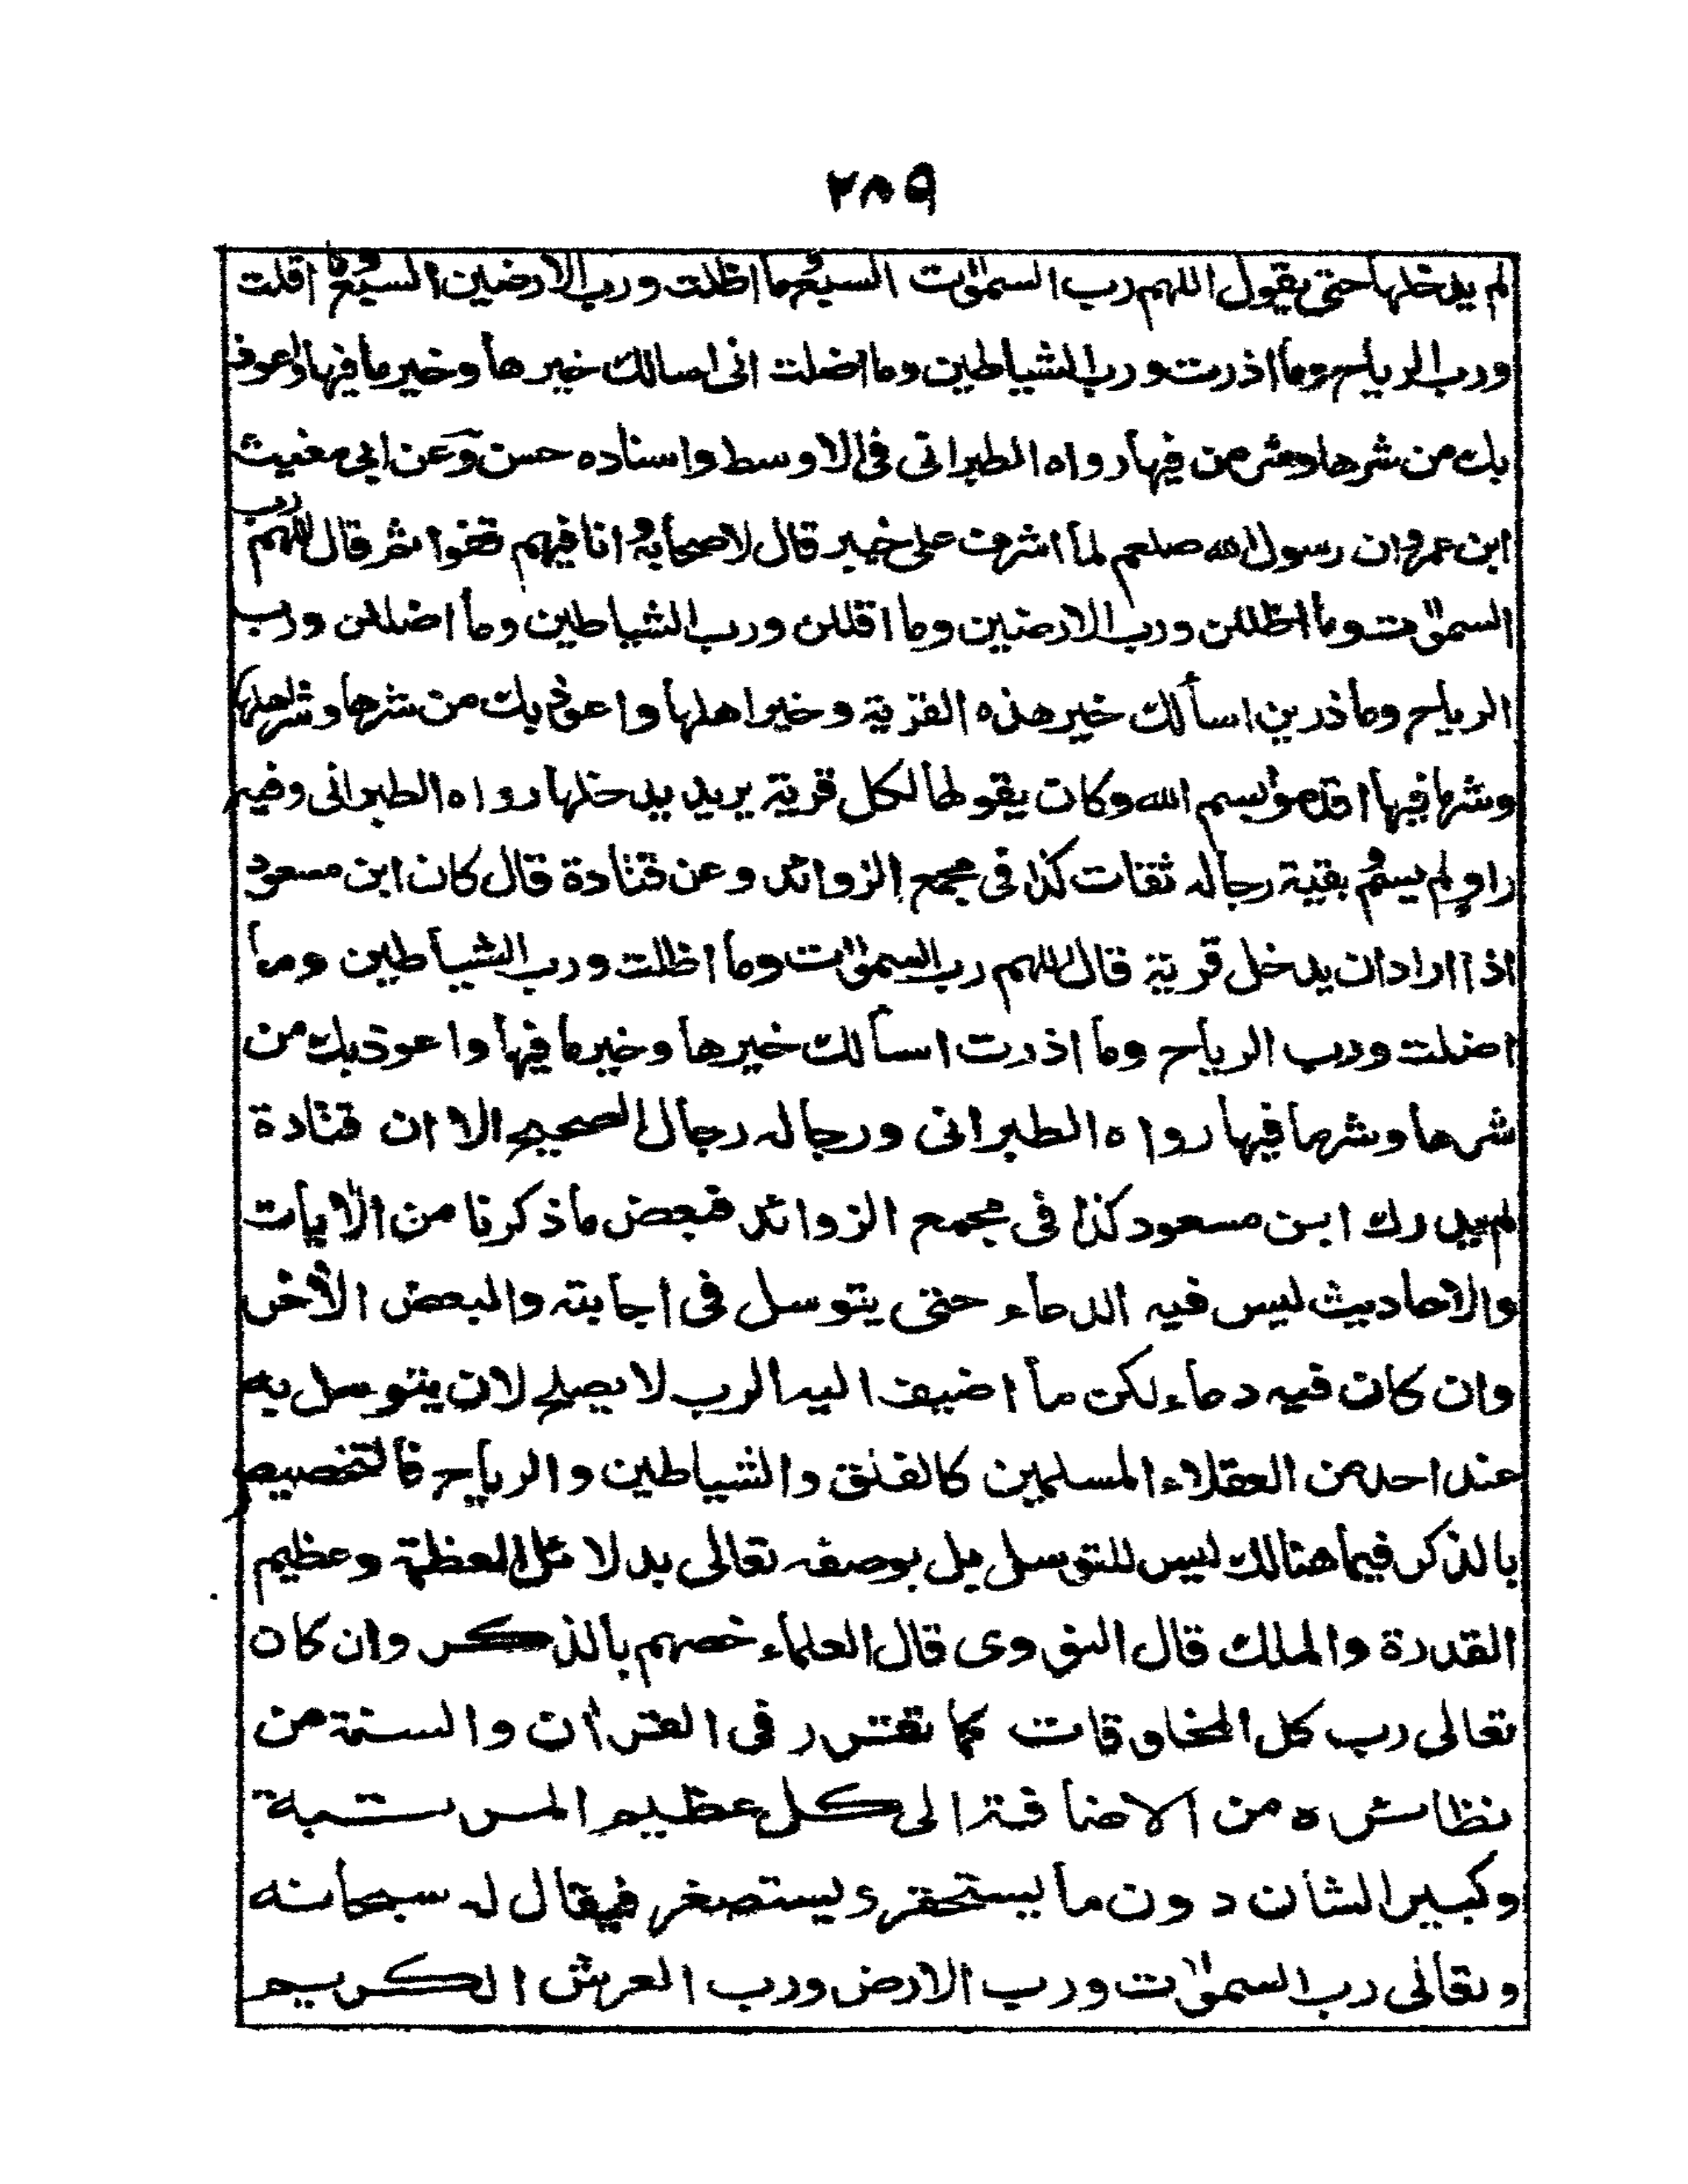 ٢٨٩
لم يدخلها حتى يقول اللهم رب السمٰوٰت السبع وما اظلت ورب الارضين السبع وما اقلت
ورب الرياح وما اذرت ورب الشياطين وما اضلت انى اسالك خيرها وخير ما فيها واعوذ
بك من شرها وشر من فيها رواه الطبرانى فى الاوسط واسناده حسن وعن ابى مغيث
ابن عمرو ان رسول الله صلعم لما اشرف على خيبر قال لاصحابه وانا فيهم قفوا ثم قال اللهم رب
السمٰوٰت وما اظللن ورب الارضين وما اقللن ورب الشياطين وما اضللن ورب
الرياح وما ذرين اسألك خير هذه القرية وخير اهلها واعوذ بك من شرها وشر اهلها
وشر ما فيها اقدموا بسم الله وكان يقولها لكل قرية يريد يدخلها رواه الطبرانى وفيه
راوٍ لم يسم وبقية رجاله ثقات كذا فى مجمع الزوائد وعن قتادة قال كان ابن مسعود
اذا اراد ان يدخل قرية قال اللهم رب السمٰوٰت وما اظلت ورب الشياطين وما
اضلت ورب الرياح وما اذرت اسألك خيرها وخير ما فيها واعوذ بك من
شرها وشر ما فيها رواه الطبرانى ورجاله رجال الصحيح الا ان قتادة
لم يدرك ابن مسعود كذا فى مجمع الزوائد فبعض ما ذكرنا من الاٰيات
والاحاديث ليس فيه الدعاء حتى يتوسل فى اجابته والبعض الاٰخر
وان كان فيه دعاء لكن ما اضيف اليه الرب لا يصلح لان يتوسل به
عند احد من العقلاء المسلمين كالفلق والشياطين والرياح فالتخصيص
بالذكر فيما هنالك ليس للتوسل بل بوصفه تعالى بدلائل العظمة وعظيم
القدرة والملك قال النووى قال العلماء خصهم بالذكر وان كان
تعالى رب كل المخلوقات كما تقرر فى القراٰن والسنة من
نظائره من الاضافة الى كل عظيم المرتبة
وكبير الشان دون ما يستحقر ويستصغر فيقال له سبحانه
وتعالى رب السمٰوٰت ورب الارض ورب العرش الكريم